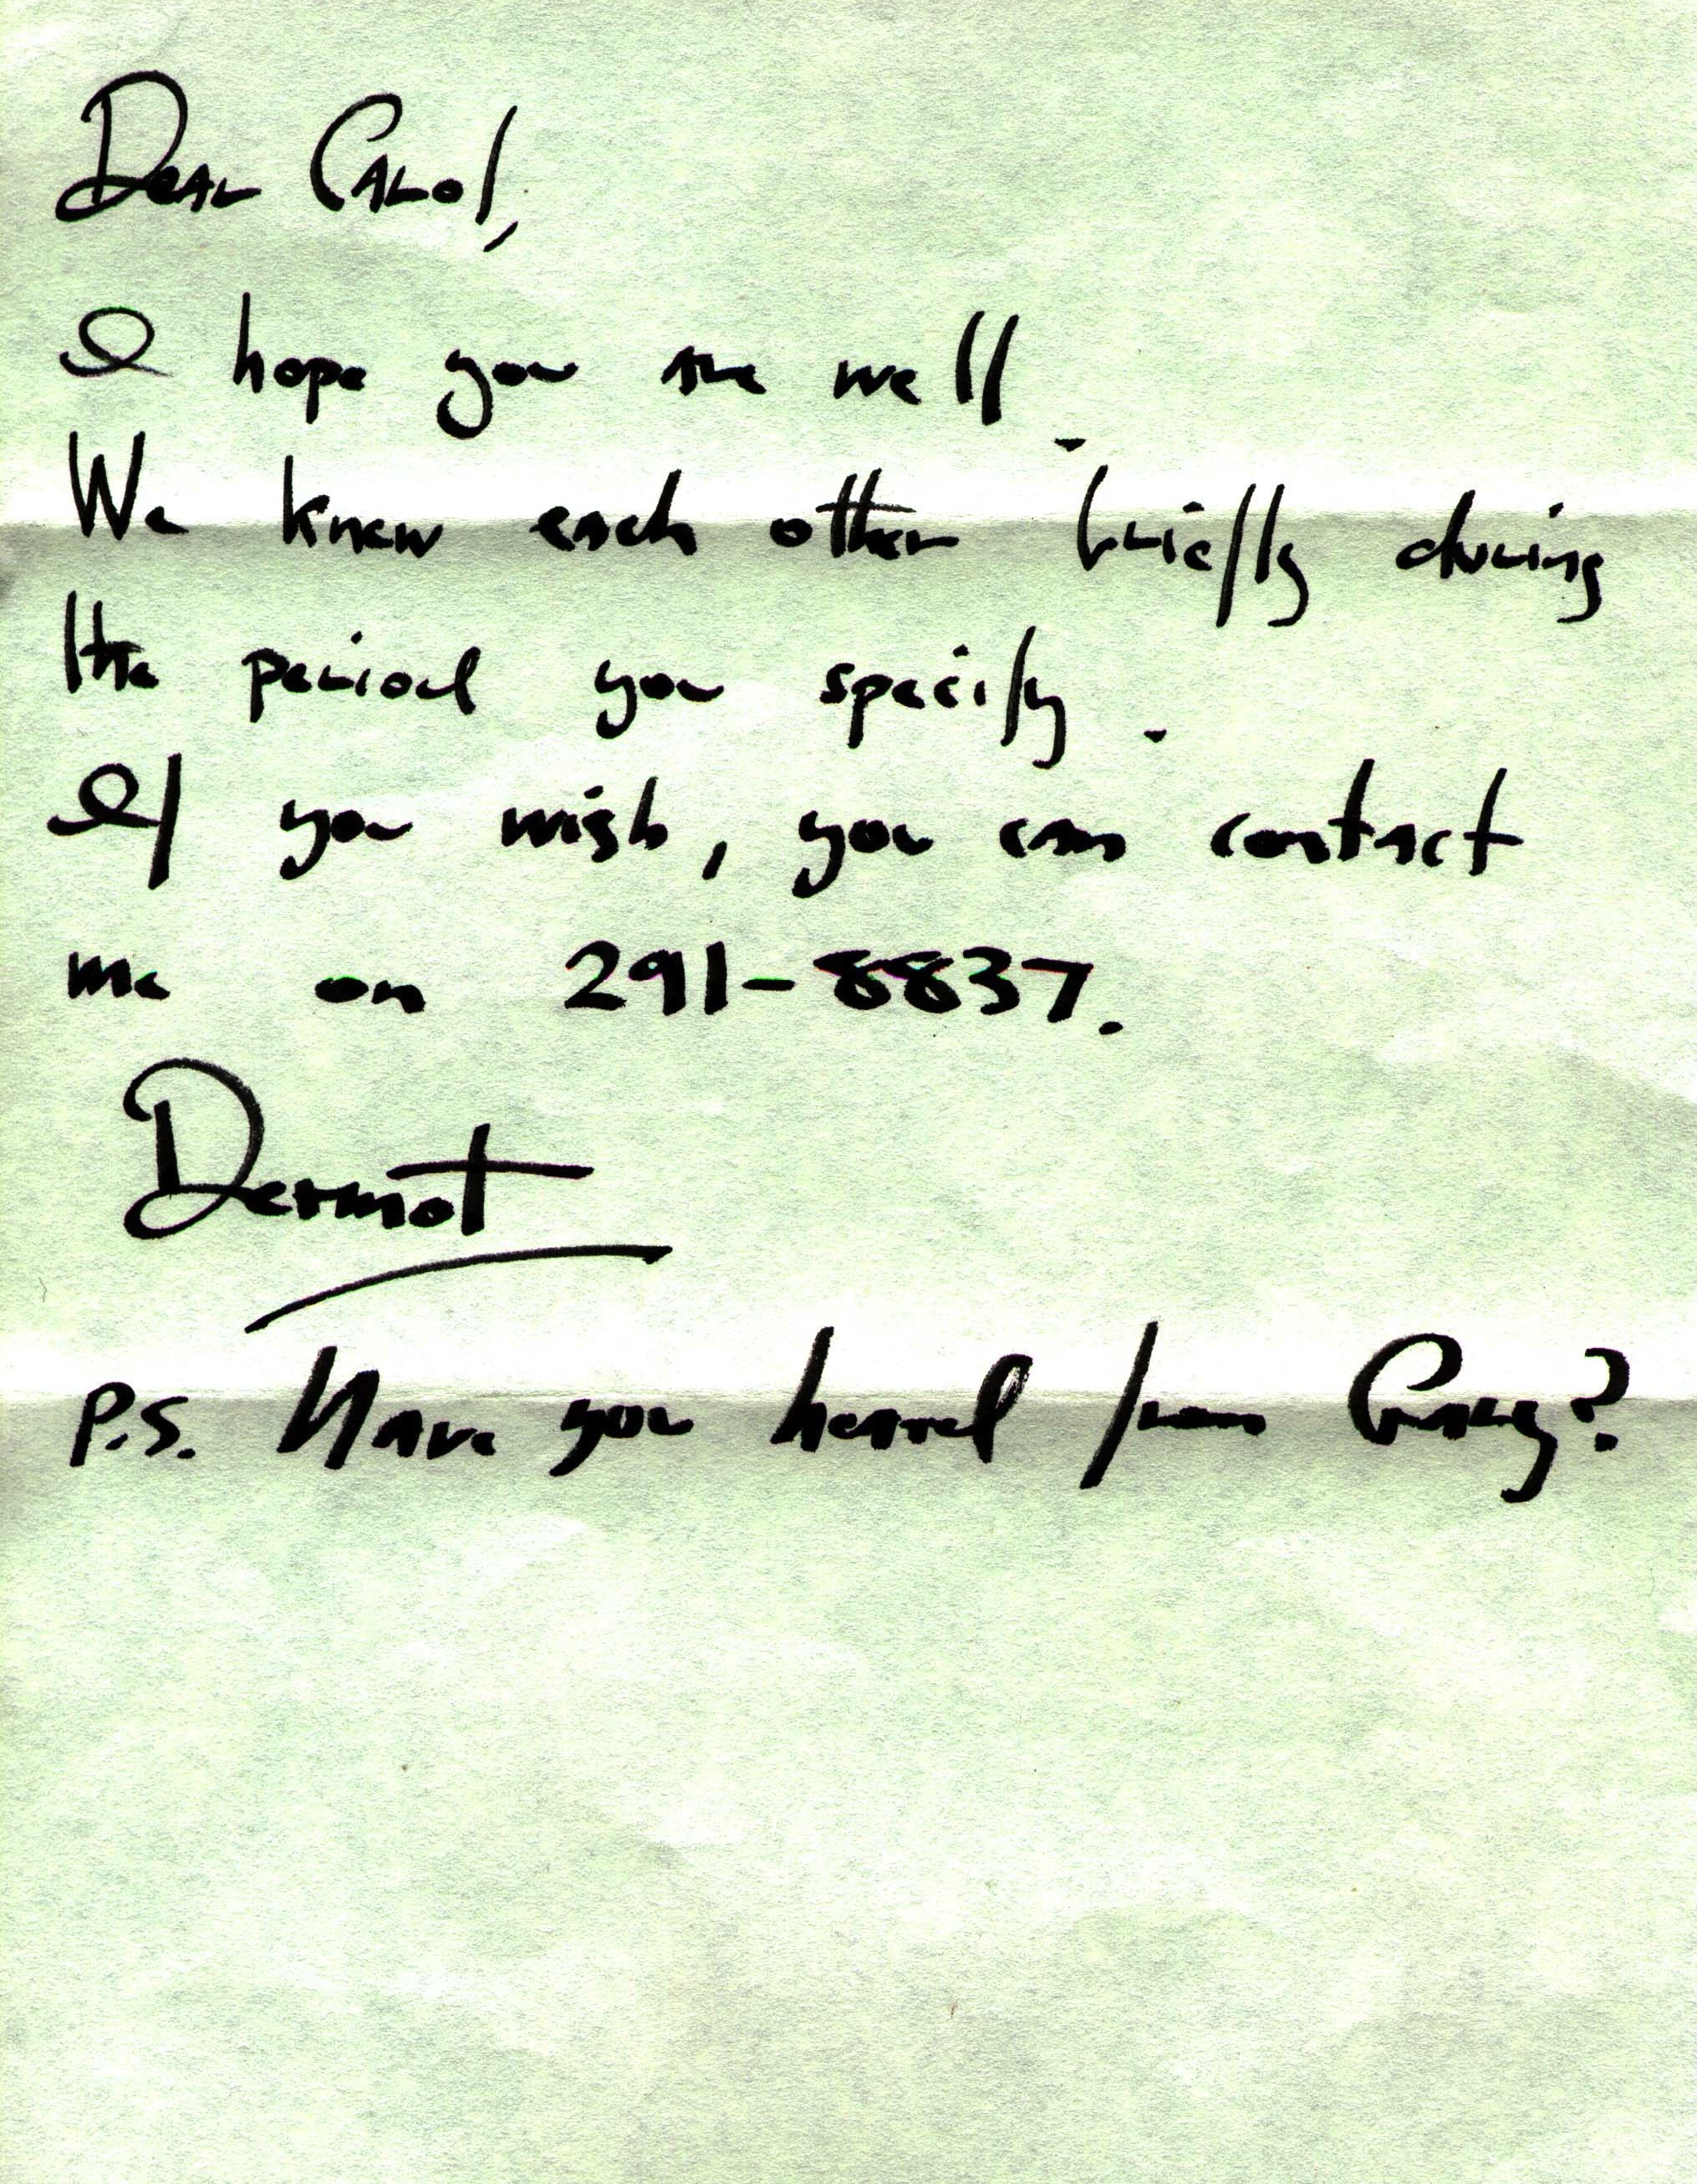 Dear Carol,
I hope you are well.
We knew each other briefly during
the period you specify.
If you wish, you can contact
me on 291-8837.
Dermot
P.S. Have you heard from Gary?